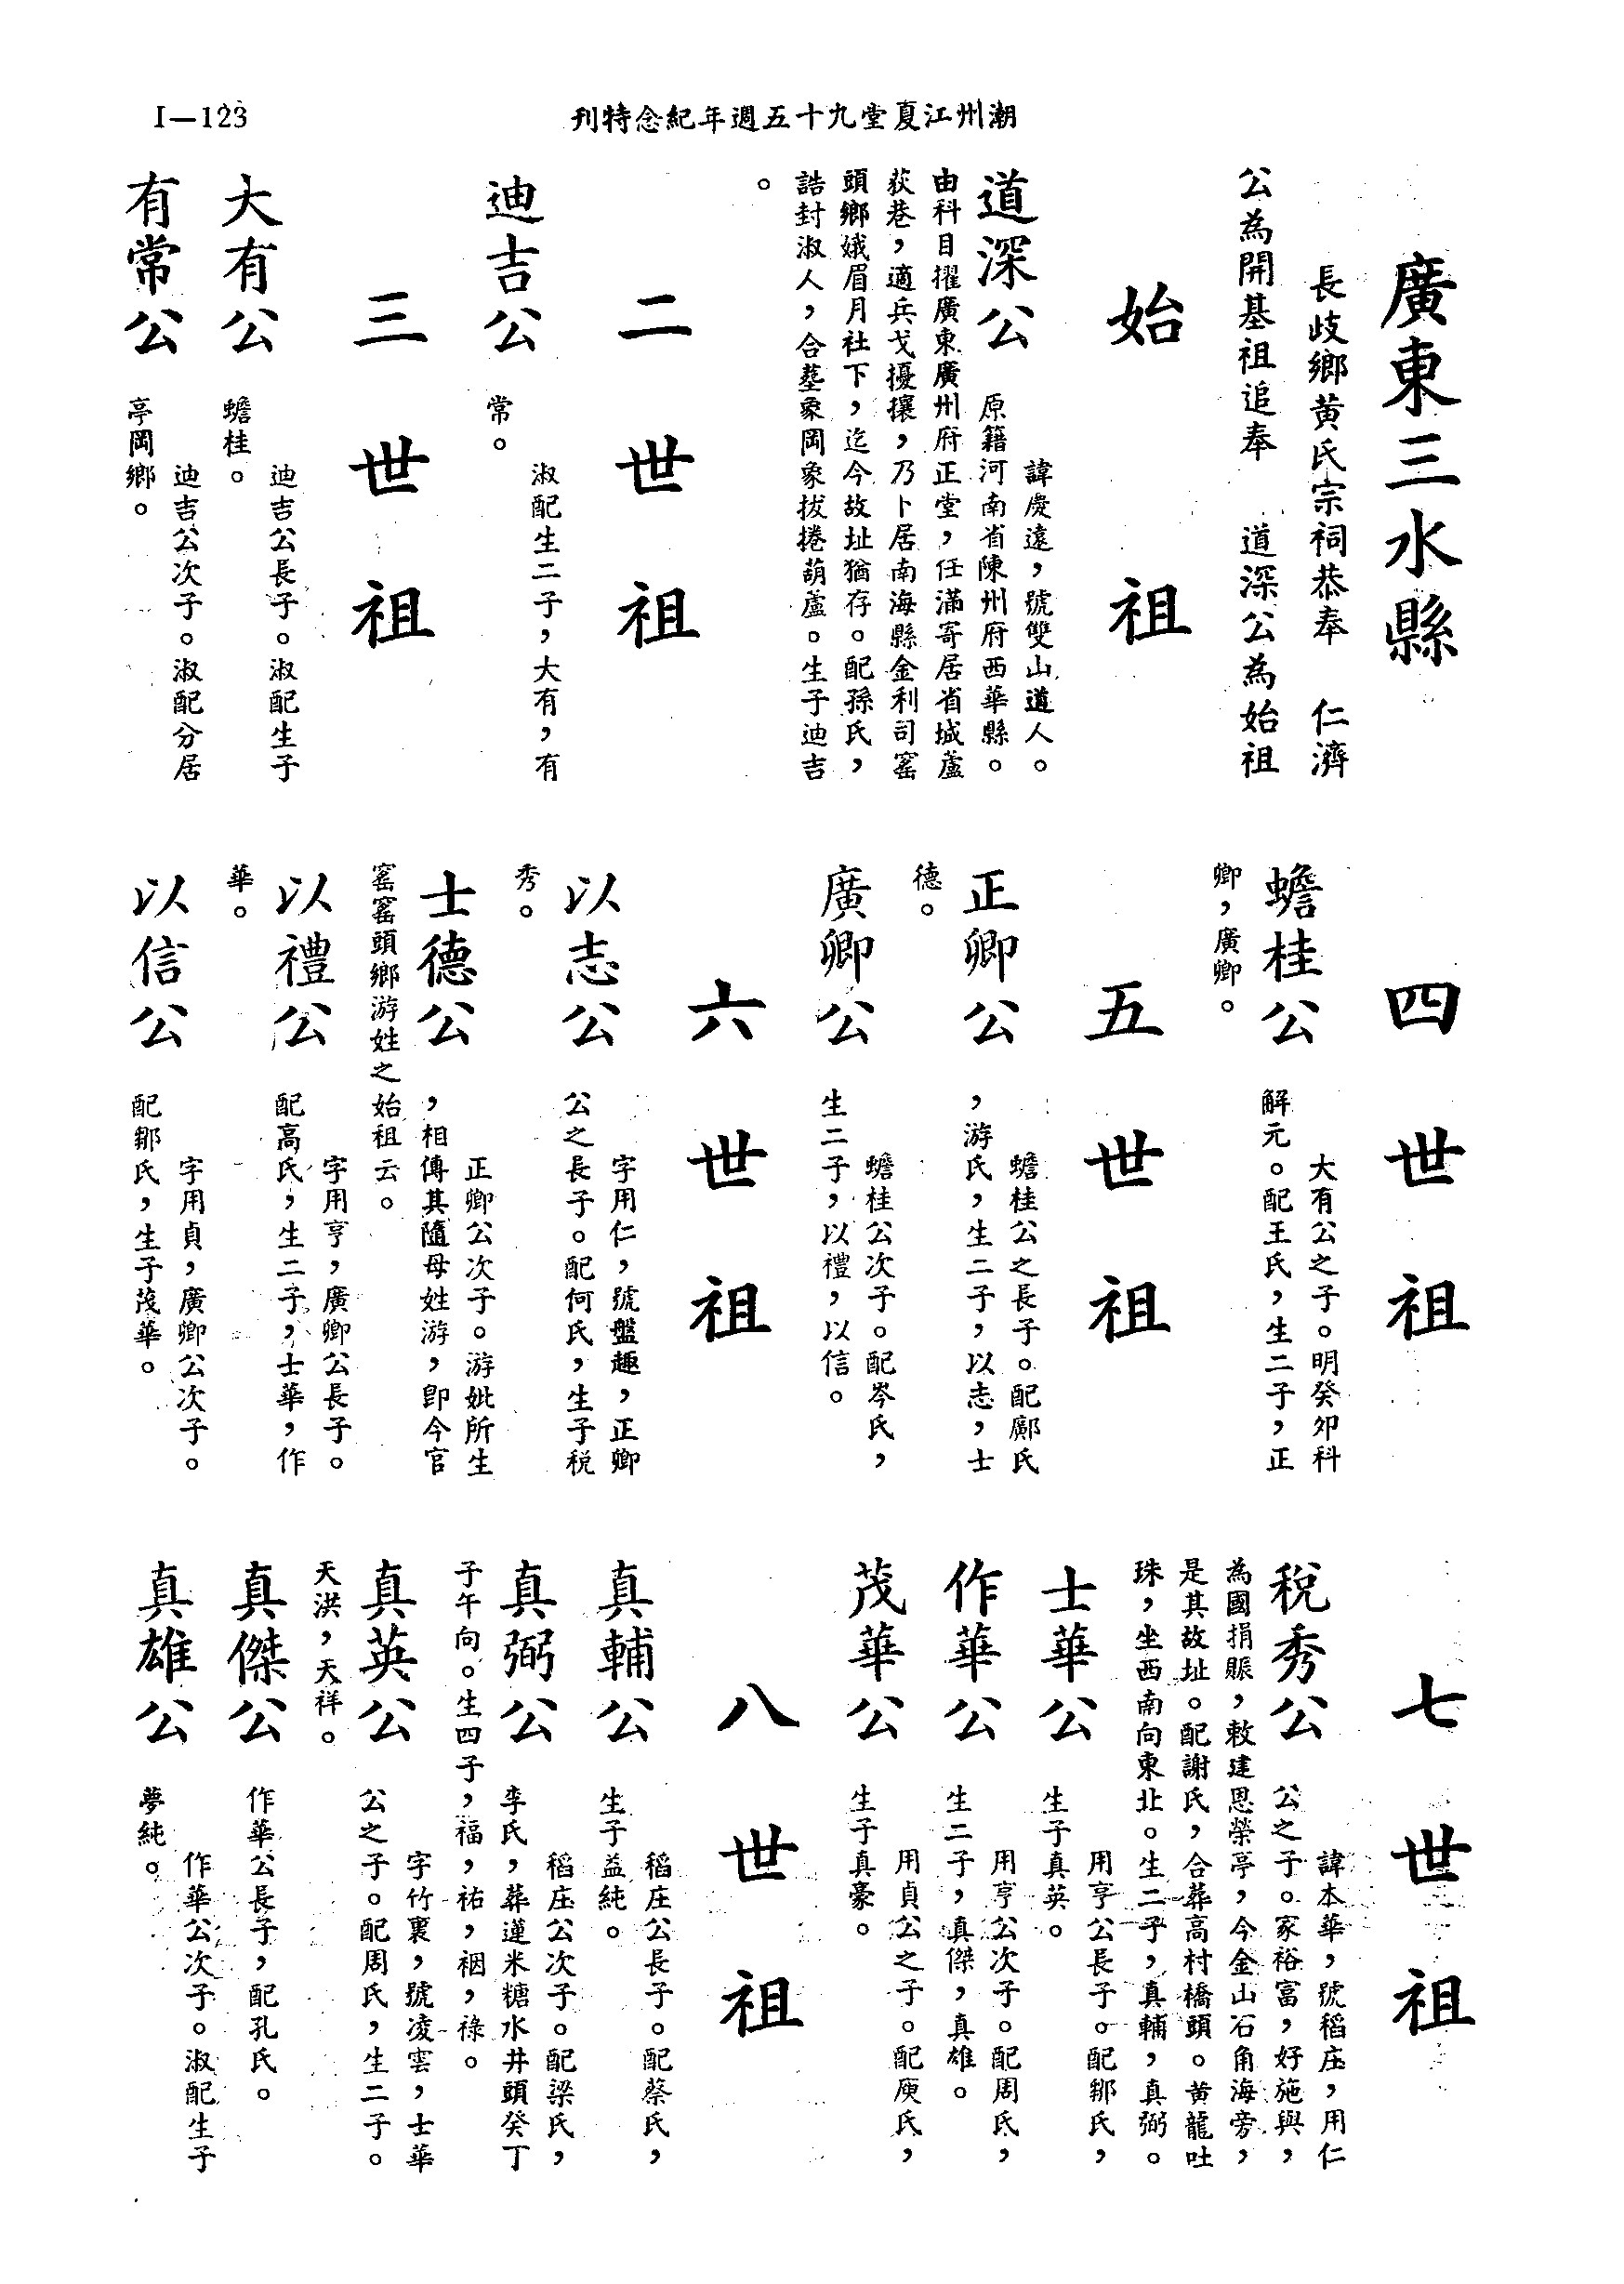 潮州江夏堂九十五週年紀念特刊
I—123
廣東三水縣
長歧鄉黃氏宗祠恭奉　仁濟
公為開基祖追奉　道深公為始祖
始　祖
道深公
諱慶遠，號雙山道人。
原籍河南省陳州府西華縣。
由科目擢廣東廣州府正堂，任滿寄居省城蘆
荻巷，適兵戈擾攘，乃卜居南海縣金利司窰
頭鄉娥眉月社下，迄今故址猶存。配孫氏，
誥封淑人，合塟象岡象拔捲葫蘆。生子迪吉
。
二世祖
迪吉公
淑配生二子，大有，有
常。
三世祖
大有公
迪吉公長子。淑配生子
蟾桂。
有常公
迪吉公次子。淑配分居
亭岡鄉。
四世祖
蟾桂公
大有公之子。明癸夘科
解元。配王氏，生二子，正
卿，廣卿。
五世祖
正卿公
蟾桂公之長子。配鄺氏
，游氏，生二子，以志，士
德。
廣卿公
蟾桂公次子。配岑氏，
生二子，以禮，以信。
六世祖
以志公
字用仁，號盤趣，正卿
公之長子。配何氏，生子稅
秀。
士德公
正卿公次子。游妣所生
，相傳其隨母姓游，即今官
窰窰頭鄉游姓之始祖云。
以禮公
字用亨，廣卿公長子。
配高氏，生二子，士華，作
華。
以信公
字用貞，廣卿公次子。
配鄒氏，生子茂華。
七世祖
稅秀公
諱本華，號稻庄，用仁
公之子。家裕富，好施與，
為國捐賑，敕建恩榮亭，今金山石角海旁，
是其故址。配謝氏，合葬高村橋頭。黃龍吐
珠，坐西南向東北。生二子，真輔，真弼。
士華公
用亨公長子。配鄒氏，
生子真英。
作華公
用亨公次子。配周氏，
生二子，真傑，真雄。
茂華公
用貞公之子。配庾氏，
生子真豪。
八世祖
真輔公
稻庄公長子。配蔡氏，
生子益純。
真弼公
稻庄公次子。配梁氏，
李氏，葬蓮米糖水井頭癸丁
子午向。生四子，福，祐，裀，祿。
真英公
字竹裏，號凌雲，士華
公之子。配周氏，生二子。
天洪，天祥。
真傑公
作華公長子，配孔氏。
真雄公
作華公次子。淑配生子
夢純。